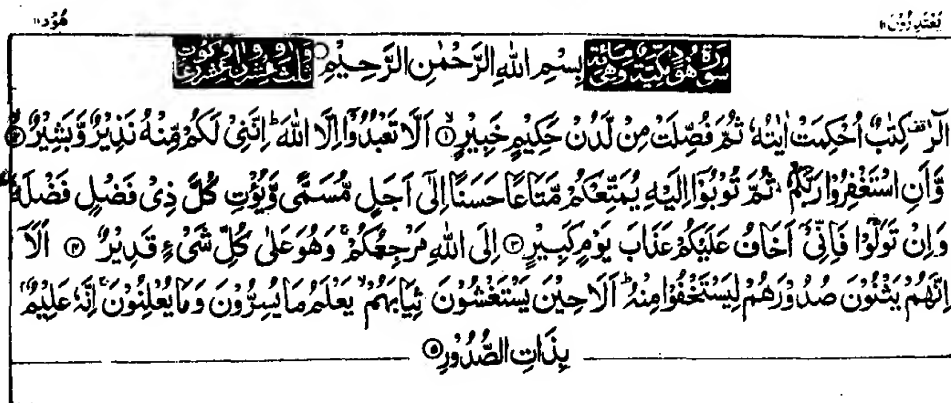 يعتذرون ۱۱ هود ۱۱
سورة هود مكية وهى مائة بِسْمِ اللهِ الرَّحْمٰنِ الرَّحِيْمِ وثلث وعشرون
الٓرٰ كِتٰبٌ اُحْكِمَتْ اٰيٰتُهٗ ثُمَّ فُصِّلَتْ مِنْ لَّدُنْ حَكِيْمٍ خَبِيْرٍ ۱ اَلَّا تَعْبُدُوْٓا اِلَّا اللهَ ؕ اِنَّنِيْ لَكُمْ مِّنْهُ نَذِيْرٌ وَّبَشِيْرٌ ۲
وَّاَنِ اسْتَغْفِرُوْا رَبَّكُمْ ثُمَّ تُوْبُوْٓا اِلَيْهِ يُمَتِّعْكُمْ مَّتَاعًا حَسَنًا اِلٰٓى اَجَلٍ مُّسَمًّى وَّيُؤْتِ كُلَّ ذِيْ فَضْلٍ فَضْلَهٗ ؕ
وَاِنْ تَوَلَّوْا فَاِنِّيْٓ اَخَافُ عَلَيْكُمْ عَذَابَ يَوْمٍ كَبِيْرٍ ۳ اِلَى اللهِ مَرْجِعُكُمْ ۚ وَهُوَ عَلٰى كُلِّ شَيْءٍ قَدِيْرٌ ۴ اَلَآ
اِنَّهُمْ يَثْنُوْنَ صُدُوْرَهُمْ لِيَسْتَخْفُوْا مِنْهُ ؕ اَلَا حِيْنَ يَسْتَغْشُوْنَ ثِيَابَهُمْ ۙ يَعْلَمُ مَا يُسِرُّوْنَ وَمَا يُعْلِنُوْنَ ۚ اِنَّهٗ عَلِيْمٌۢ
بِذَاتِ الصُّدُوْرِ ۵